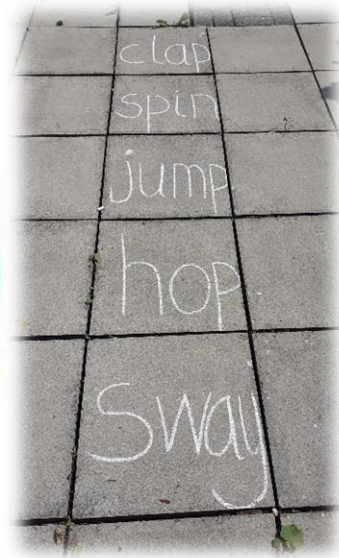 clap
spin
jump
hop
sway